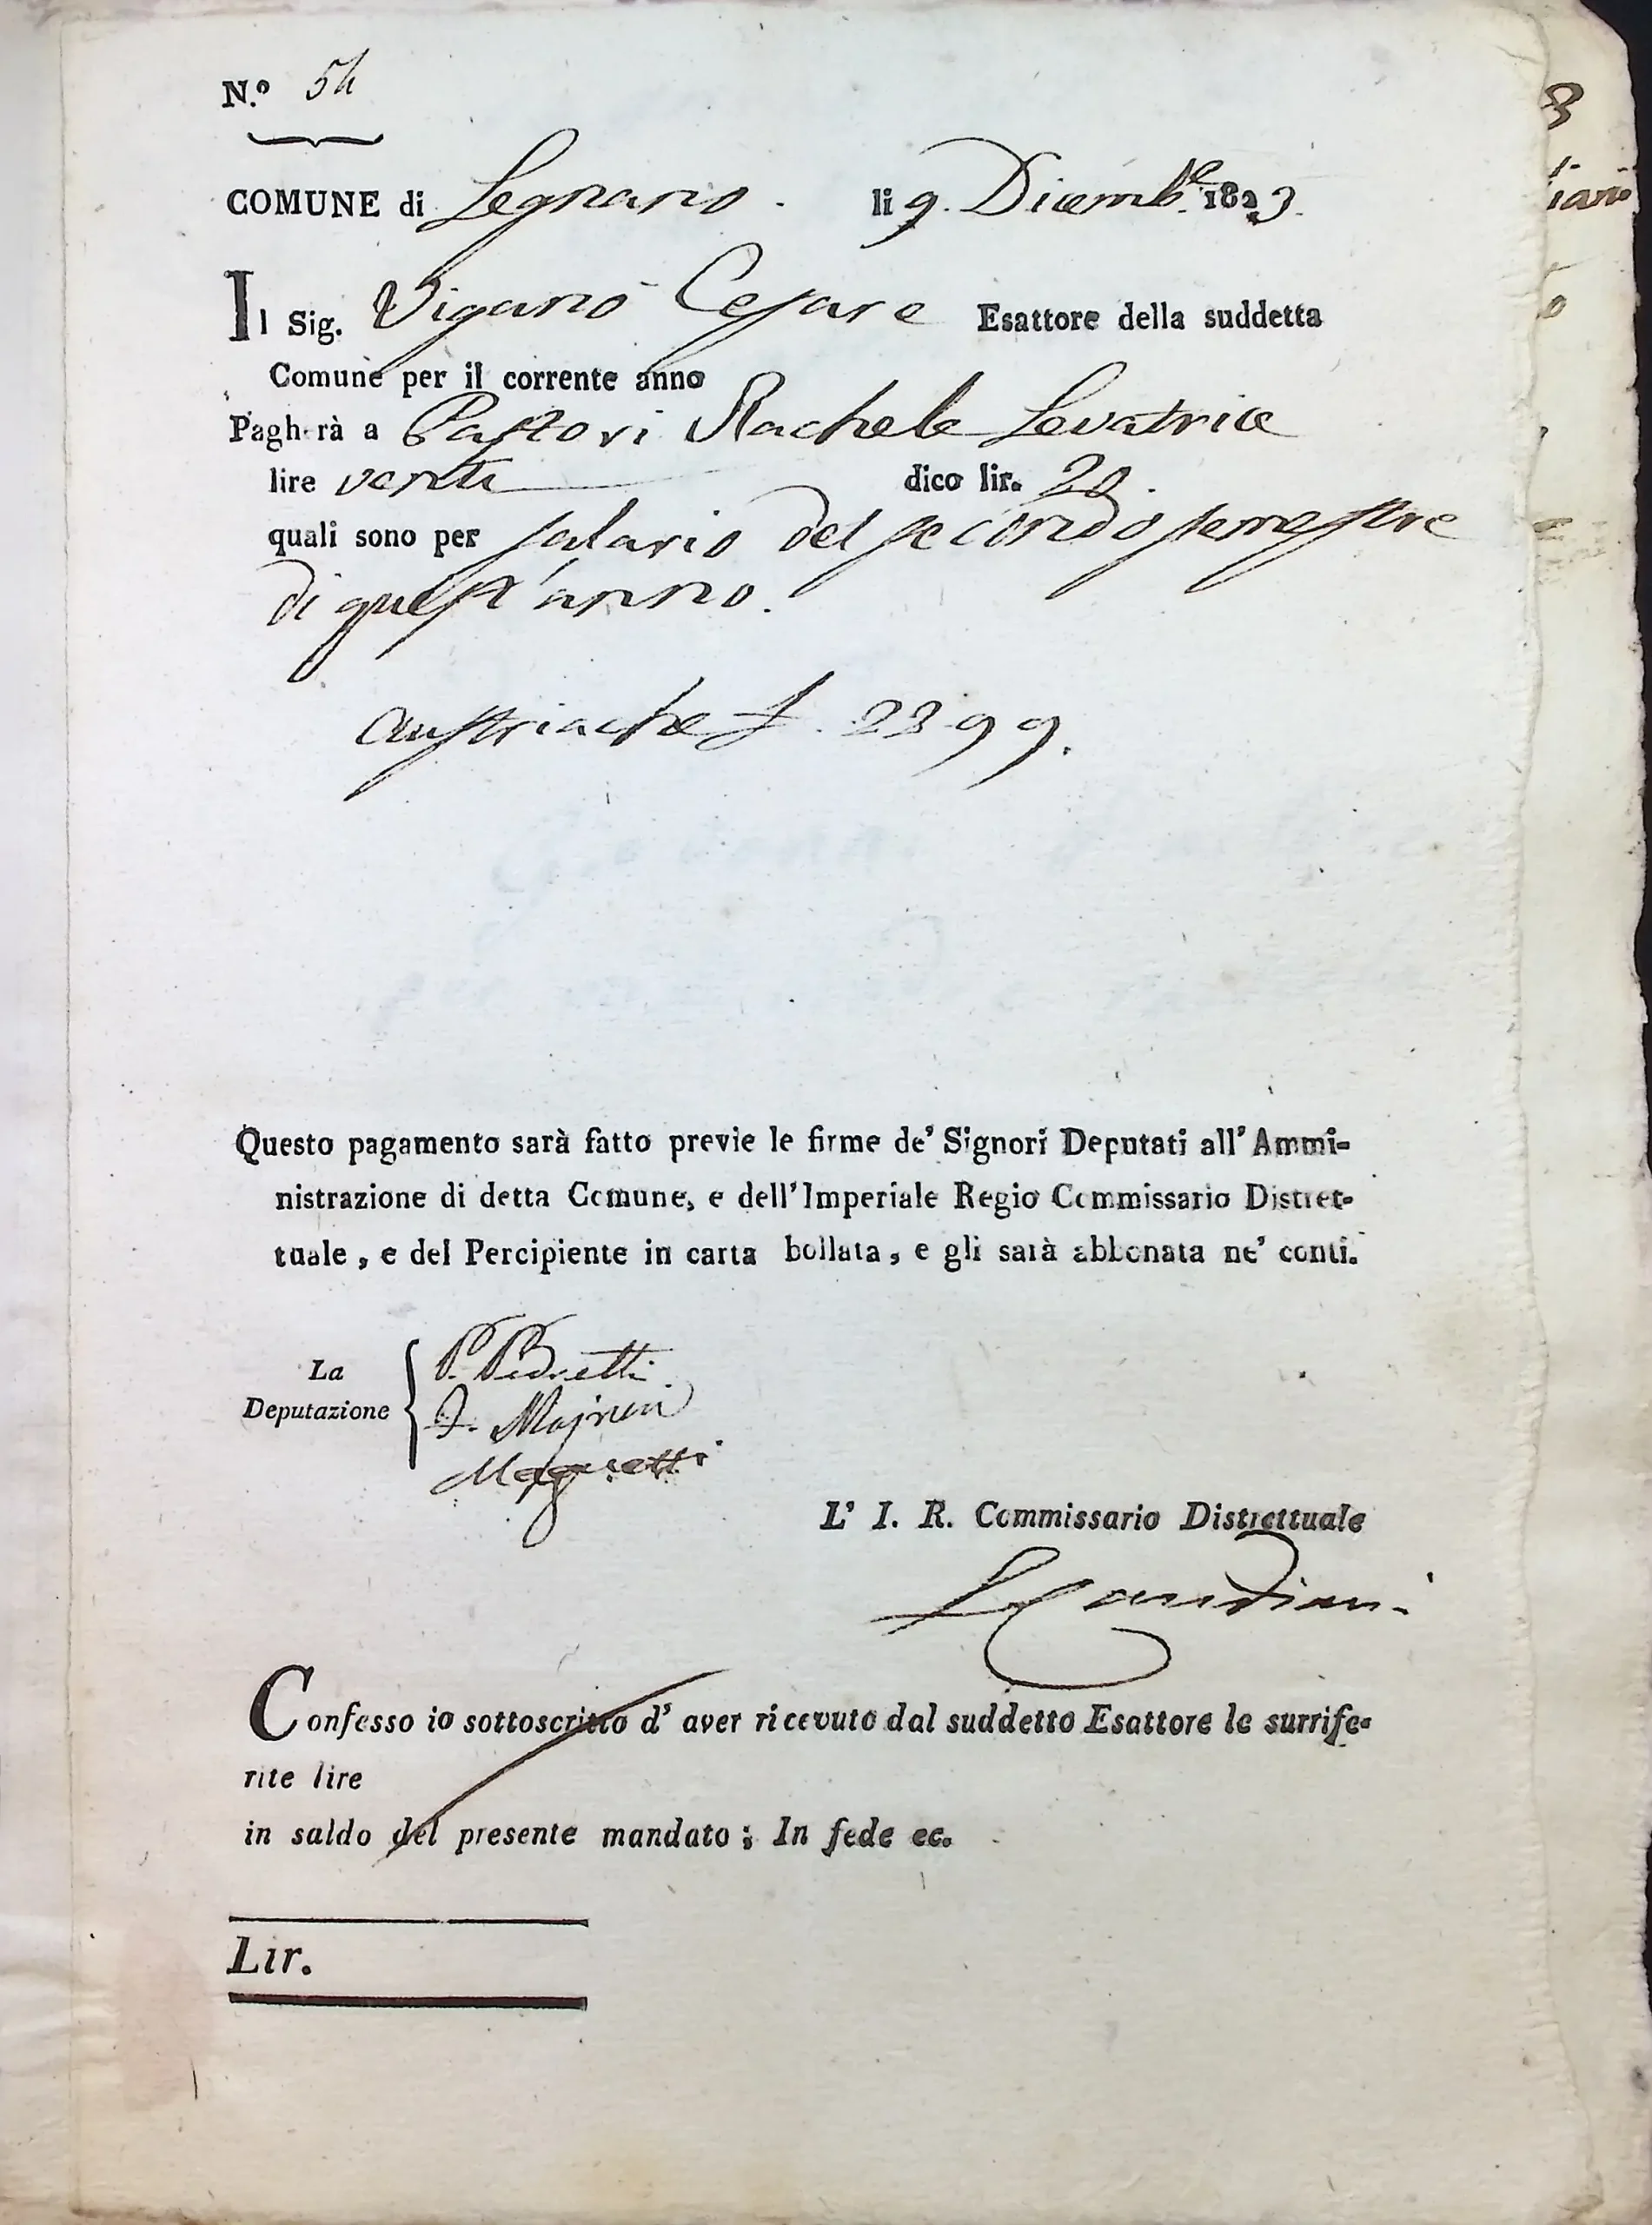 N.º 54
COMUNE di Legnano. li 9. Dicemb.e 1823.
Il Sig. Viganò Cesare Esattore della suddetta
Comune per il corrente anno
Pagherà a Pastori Rachele Levatrice
lire venti dico lir. 20.
quali sono per salario del secondo semestre
di quest'anno.
austriache £. 22 99.
Questo pagamento sarà fatto previe le firme de' Signori Deputati all' Ammi-
nistrazione di detta Comune, e dell'Imperiale Regio Commissario Distret-
tuale, e del Percipiente in carta bollata, e gli sarà abbonata ne' conti.
La
Deputazione
P. Pedretti
L' I. R. Commissario Distrettuale
Confesso io sottoscritto d' aver ricevuto dal suddetto Esattore le surrife-
rite lire
in saldo del presente mandato; In fede ec.
Lir.